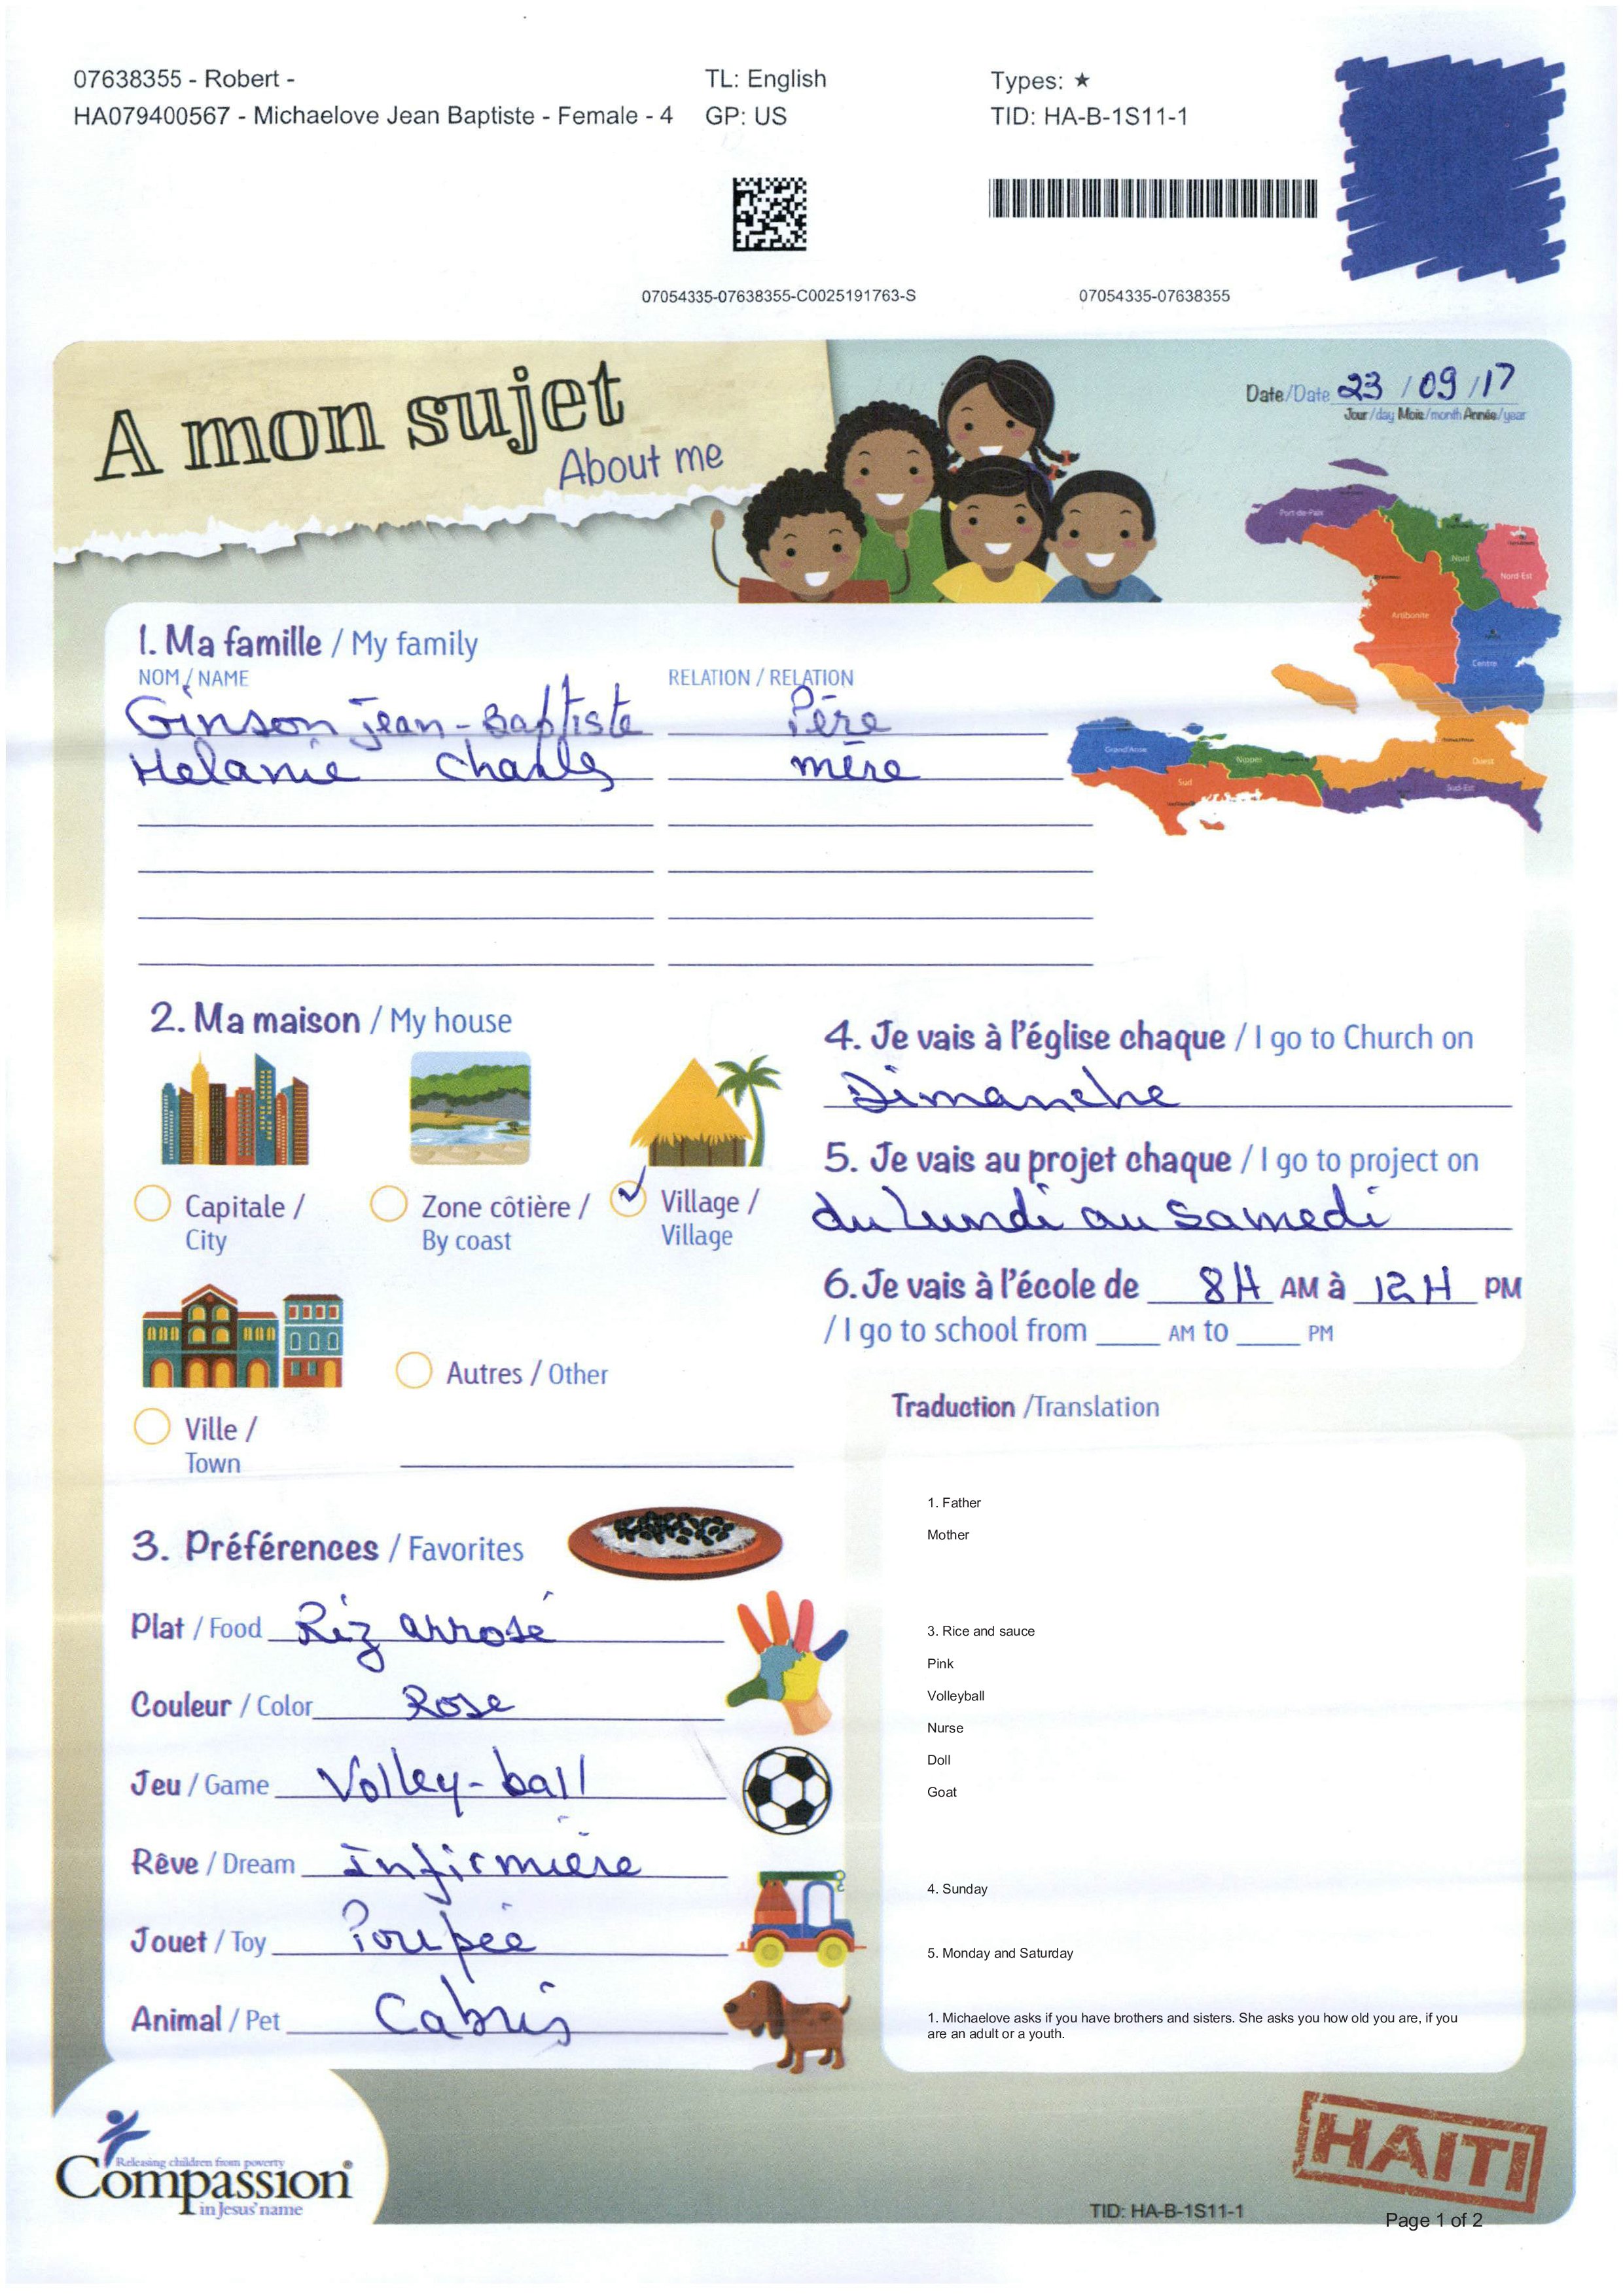 07638355 - Robert -
HA079400567 - Michaelove Jean Baptiste - Female - 4
TL: English
GP: US
Types: ★
TID: HA-B-1S11-1
07054335-07638355-C0025191763-S
07054335-07638355
A mon sujet
About me
Date/Date 23 / 09 / 17
Jour/day Mois/month Année/year
Port-de-Paix
Nord
Nord-Est
Artibonite
Centre
Grand'Anse
Nippes
Ouest
Sud
Sud-Est
1. Ma famille / My family
NOM / NAME RELATION / RELATION
Ginson Jean-Baptiste Père
Melanie Charles mère
2. Ma maison / My house
Capitale /
City
Zone côtière /
By coast
Village /
Village
Ville /
Town
Autres / Other
3. Préférences / Favorites
Plat / Food Riz arrosé
Couleur / Color Rose
Jeu / Game Volley-ball
Rêve / Dream Infirmière
Jouet / Toy Poupée
Animal / Pet Cabris
4. Je vais à l'église chaque / I go to Church on
Dimanche
5. Je vais au projet chaque / I go to project on
du Lundi au Samedi
6. Je vais à l'école de 8H AM à 12H PM
/ I go to school from ____ AM to ____ PM
Traduction /Translation
1. Father
Mother
3. Rice and sauce
Pink
Volleyball
Nurse
Doll
Goat
4. Sunday
5. Monday and Saturday
1. Michaelove asks if you have brothers and sisters. She asks you how old you are, if you
are an adult or a youth.
Releasing children from poverty
Compassion®
in Jesus' name
HAITI
TID: HA-B-1S11-1
Page 1 of 2